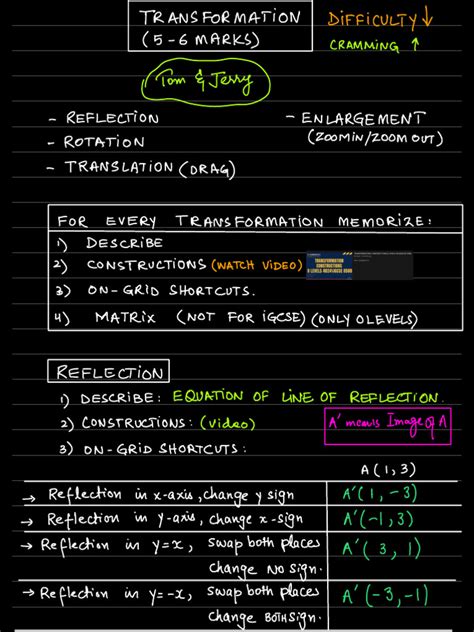 TRANSFORMATION
(5-6 MARKS)
DIFFICULTY ↓
CRAMMING ↑
Tom & Jerry
- REFLECTION
- ROTATION
- TRANSLATION (DRAG)
- ENLARGEMENT
(ZOOMIN/ZOOM OUT)
FOR EVERY TRANSFORMATION MEMORIZE:
1) DESCRIBE
2) CONSTRUCTIONS (WATCH VIDEO)
TRANSFORMATION
CONSTRUCTIONS
3) ON-GRID SHORTCUTS.
4) MATRIX (NOT FOR IGCSE) (ONLY OLEVELS)
REFLECTION
1) DESCRIBE: EQUATION OF LINE OF REFLECTION.
2) CONSTRUCTIONS: (video)
A' means Image of A
3) ON-GRID SHORTCUTS:
A(1,3)
→ Reflection in x-axis, change y sign
A'(1,-3)
→ Reflection in y-axis, change x-sign
A'(-1,3)
→ Reflection in y=x, swap both places
change NO sign.
A'(3,1)
→ Reflection in y=-x, swap both places
change BOTH sign.
A'(-3,-1)